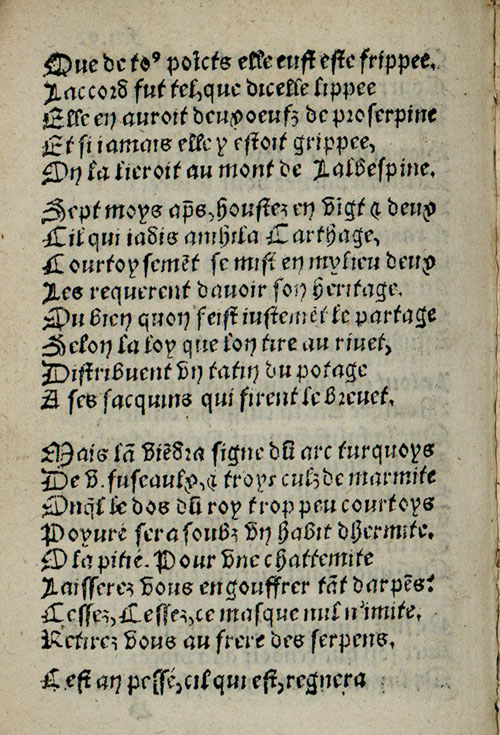 Que de toꝰ poīcts elle eust este frippee.
Laccord fut tel, que dicelle lippee
Elle en auroit deux oeufz de proserpine
Et si iamais elle y estoit grippee,
On la lieroit au mont de Lalbespine.
Sept moys aps̄, houstez en vīgt & deux
Cil qui iadis anihila Carthage,
Courtoysemēt se mist en mylieu deux
Les requerent dauoir son heritage.
Ou bien quon feist iustemēt le partage
Selon la loy que lon tire au riuet,
Distribuent vn tatin du potage
A ses facquins qui firent le breuet.
Mais lā viēdra signe dū arc turquoys
De v. fuseaulx, & troys culz de marmite
Onql̄ le dos dū roy trop peu courtoys
Poyure sera soubz vn habit dhermite.
O la pitie. Pour vne chattemite
Laisserez vous engouffrer tāt darpēs?
Cessez, Cessez, ce masque nul n'imite,
Retirez vous au frere des serpens.
Cest an pessé, cil qui est, regnera